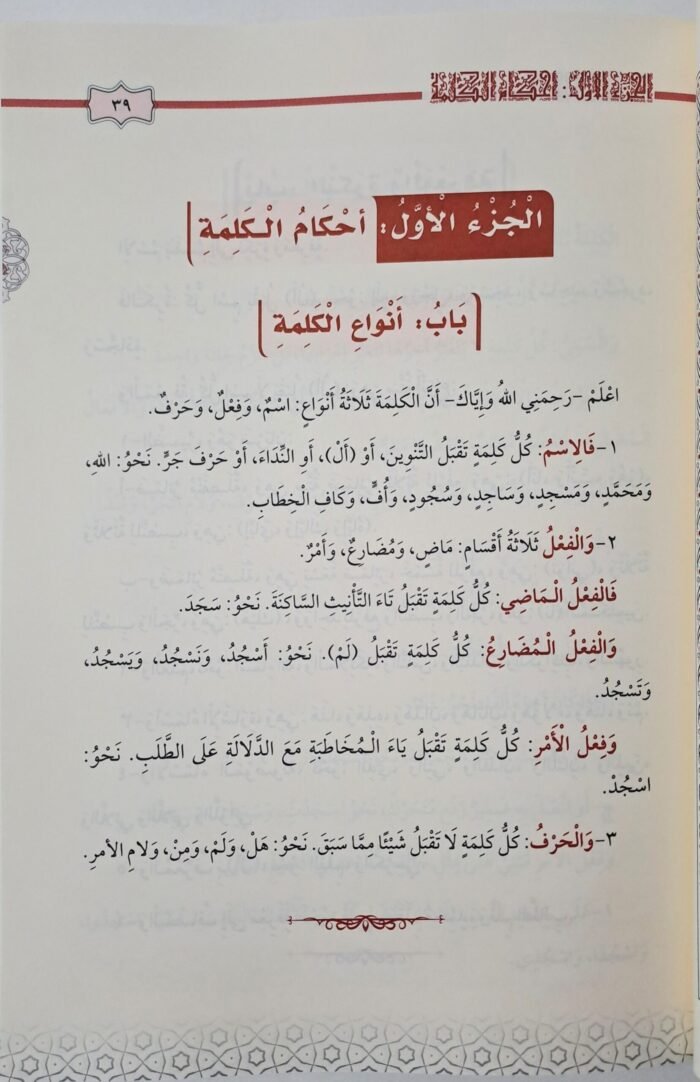 الجزء الأول: أحكام الكلمة
٣٩
الْجُزْءُ الْأَوَّلُ: أَحْكَامُ الْكَلِمَةِ
بَابُ: أَنْوَاعِ الْكَلِمَةِ
اعْلَمْ -رَحِمَنِي اللهُ وَإِيَّاكَ- أَنَّ الْكَلِمَةَ ثَلَاثَةُ أَنْوَاعٍ: اسْمٌ، وَفِعْلٌ، وَحَرْفٌ.
١-فَالِاسْمُ: كُلُّ كَلِمَةٍ تَقْبَلُ التَّنْوِينَ، أَوْ (أَلْ)، أَوِ النِّدَاءَ، أَوْ حَرْفَ جَرٍّ. نَحْوُ: اللهِ،
وَمُحَمَّدٍ، وَمَسْجِدٍ، وَسَاجِدٍ، وَسُجُودٍ، وَأُفٍّ، وَكَافِ الْخِطَابِ.
٢-وَالْفِعْلُ ثَلَاثَةُ أَقْسَامٍ: مَاضٍ، وَمُضَارِعٌ، وَأَمْرٌ.
فَالْفِعْلُ الْمَاضِي: كُلُّ كَلِمَةٍ تَقْبَلُ تَاءَ التَّأْنِيثِ السَّاكِنَةَ. نَحْوُ: سَجَدَ.
وَالْفِعْلُ الْمُضَارِعُ: كُلُّ كَلِمَةٍ تَقْبَلُ (لَمْ). نَحْوُ: أَسْجُدُ، وَنَسْجُدُ، وَيَسْجُدُ،
وَتَسْجُدُ.
وَفِعْلُ الْأَمْرِ: كُلُّ كَلِمَةٍ تَقْبَلُ يَاءَ الْمُخَاطَبَةِ مَعَ الدَّلَالَةِ عَلَى الطَّلَبِ. نَحْوُ:
اسْجُدْ.
٣-وَالْحَرْفُ: كُلُّ كَلِمَةٍ لَا تَقْبَلُ شَيْئًا مِمَّا سَبَقَ. نَحْوُ: هَلْ، وَلَمْ، وَمِنْ، وَلَامِ الأمرِ.